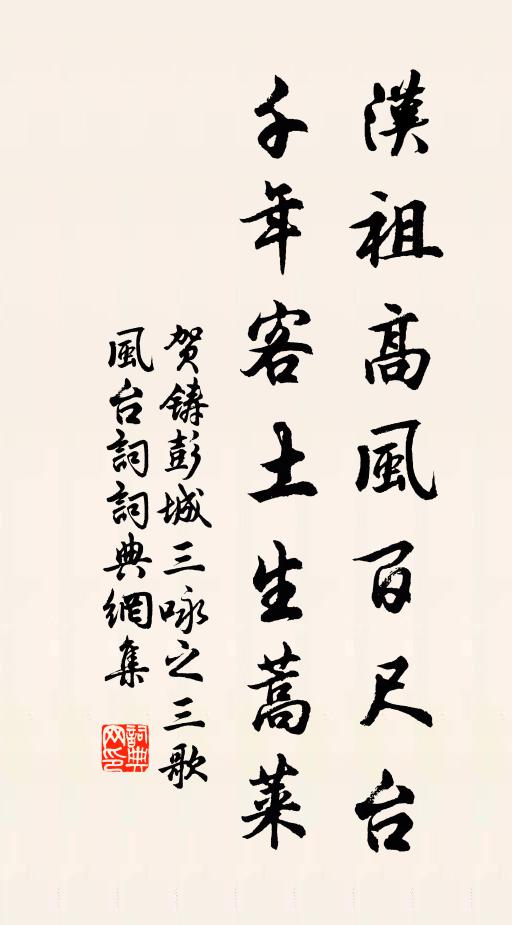 漢祖高風百尺台
千年客土生蒿萊
贺鑄彭城三咏之三歌
風台詞詞典網集
詞典网印